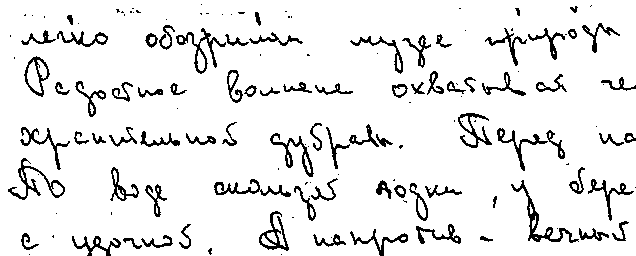 легко обозрим музее природы
Радостное волнение охватывая че
хранительной дубравы. Перед на
По воде скользят лодки, у бере
с удочкой. А напротив - вечный